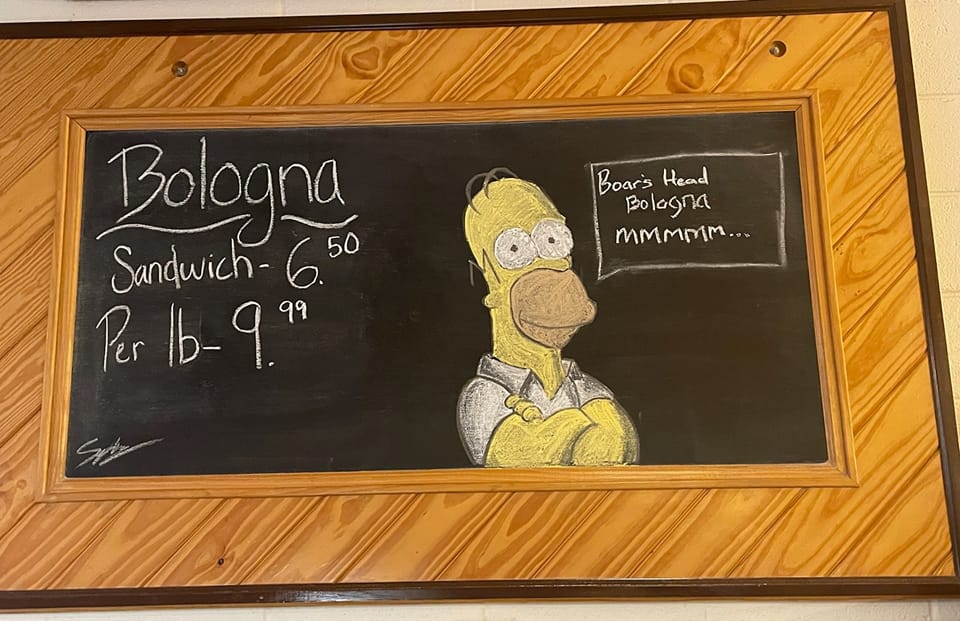 Bologna
Sandwich - 6.50
Per lb - 9.99
Boar's Head
Bologna
mmmmm...